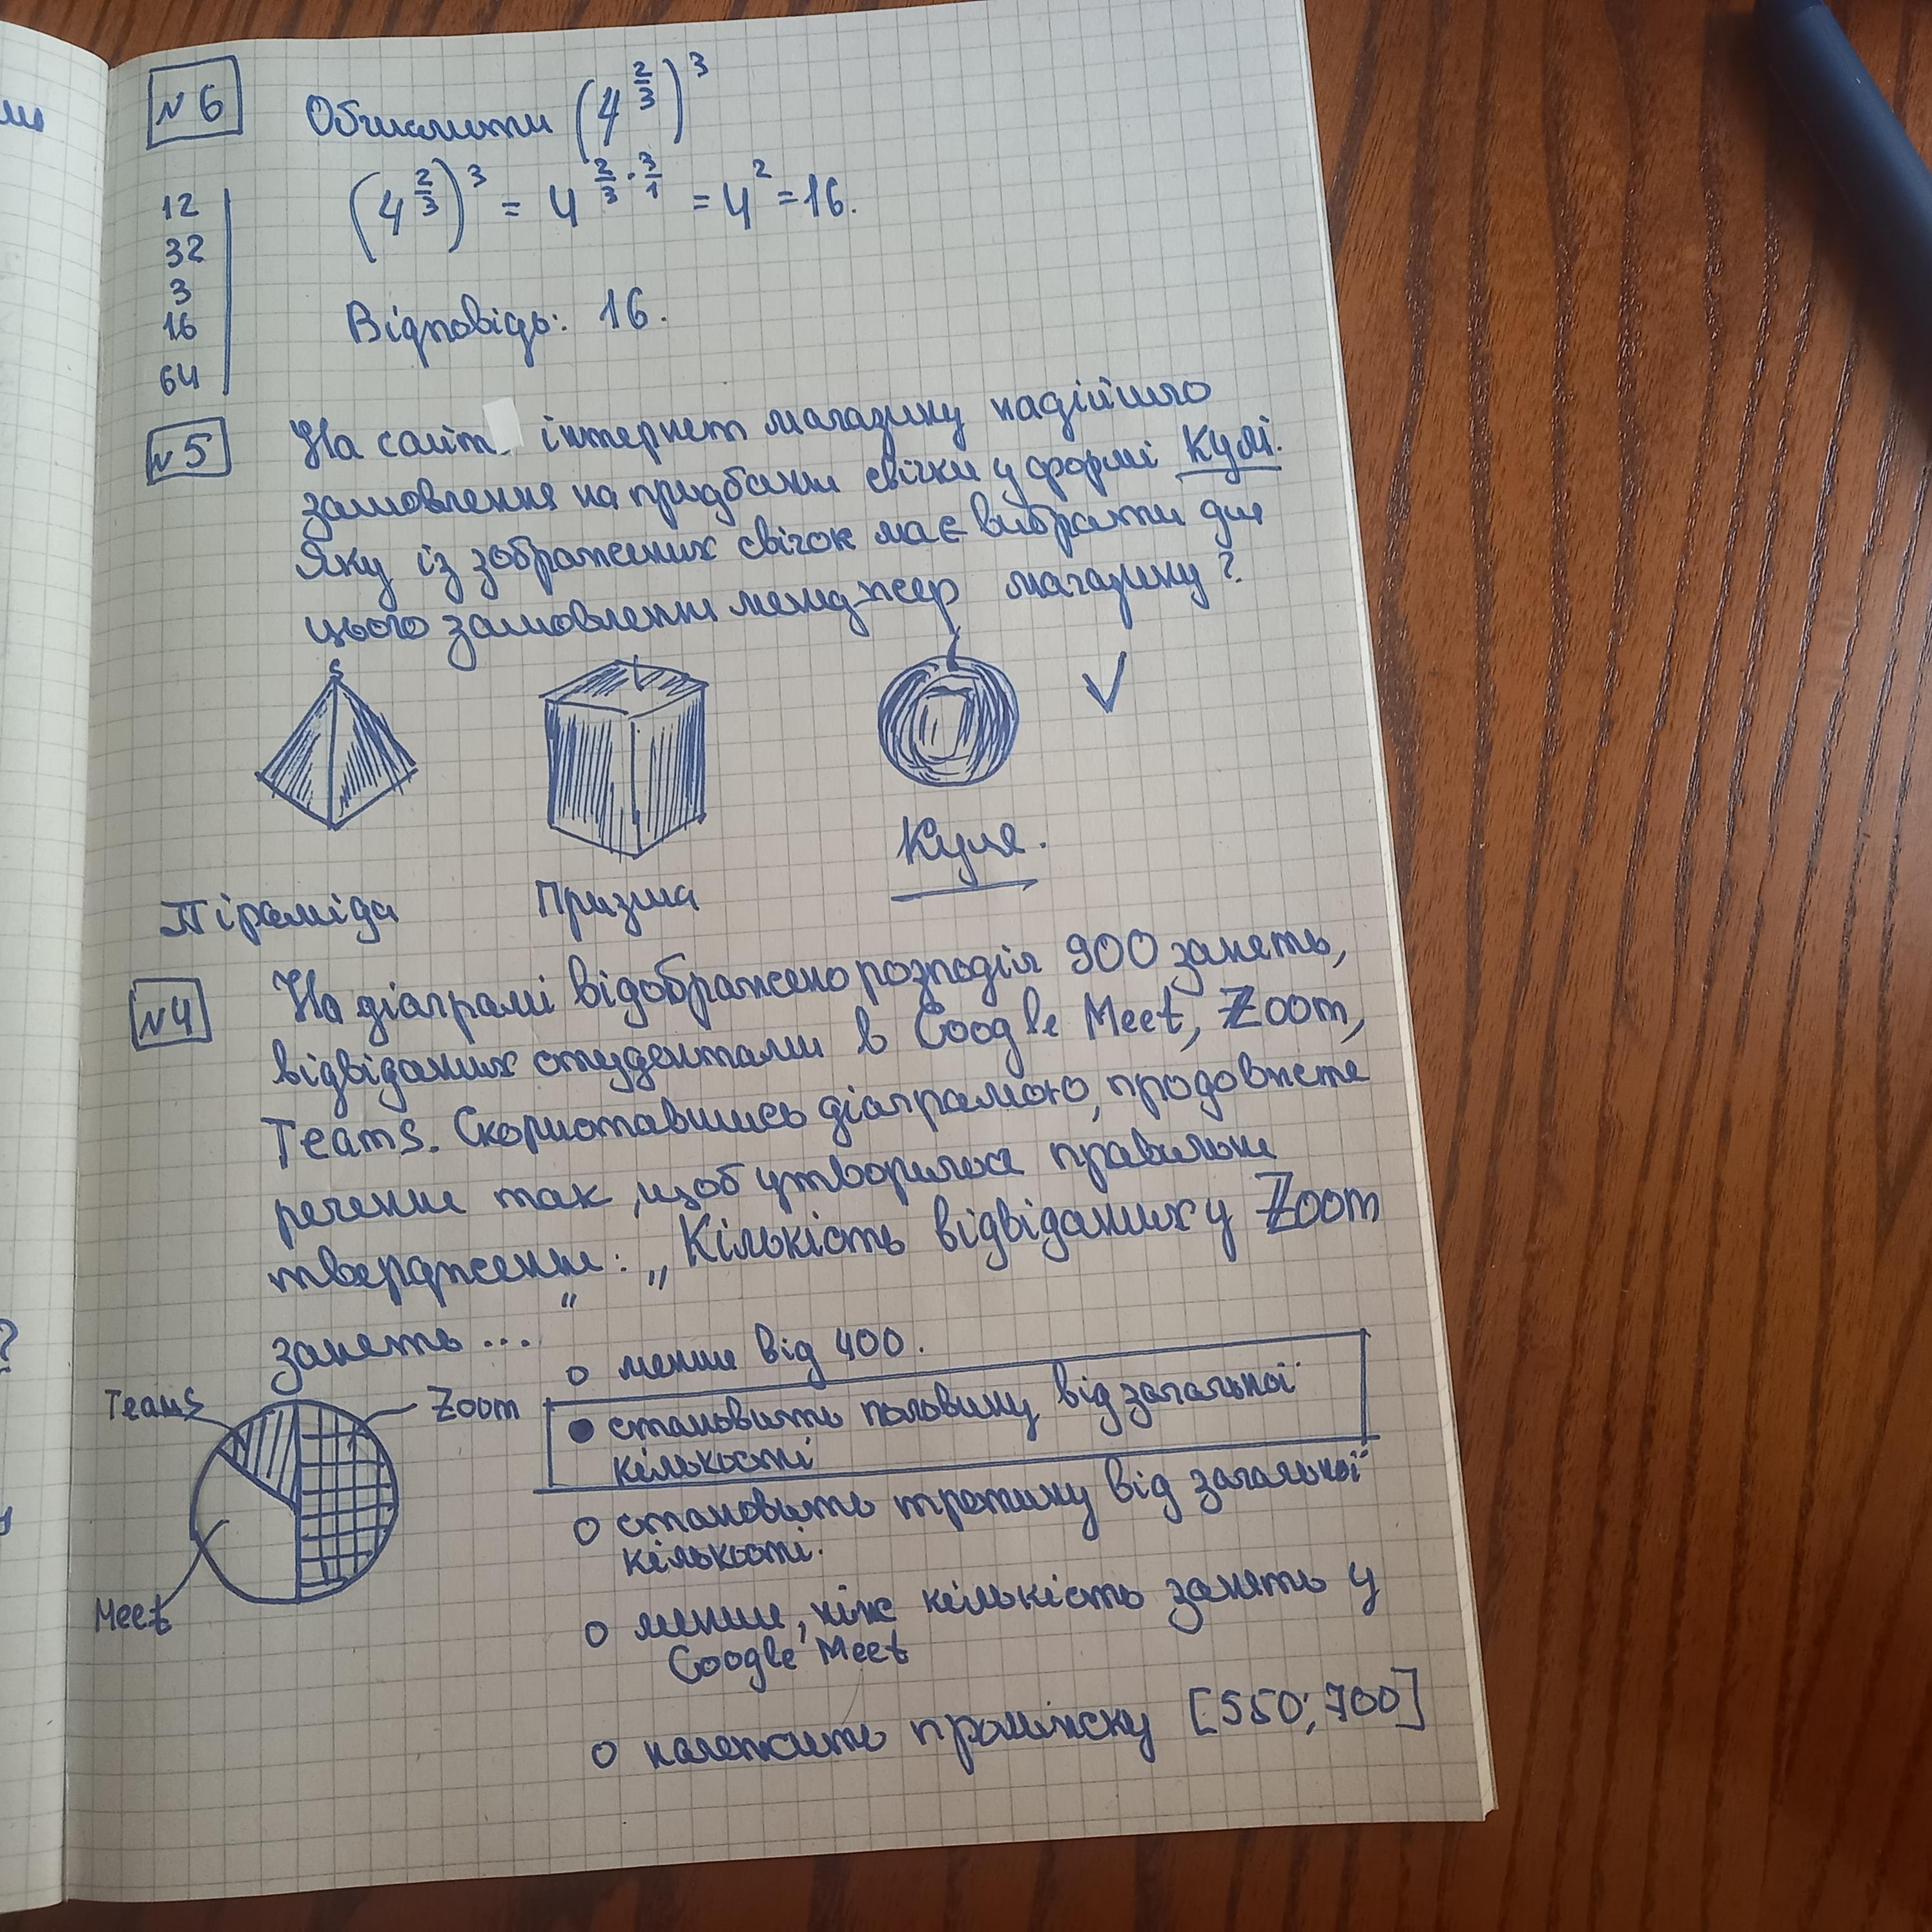 №6 Обчислити (4^(2/3))^3
(4^(2/3))^3 = 4^(2/3 · 3/1) = 4^2 = 16.
12
32
3
16
64
Відповідь: 16.
№5 На сайт інтернет магазину надійшло
замовлення на придбання свічки у формі Кулі.
Яку із зображених свічок має вибрати для
цього замовлення менеджер магазину?
Піраміда Призма Куля.
№4 На діаграмі відображено розподіл 900 занять,
відвіданих студентами в Google Meet, Zoom,
Teams. Скориставшись діаграмою, продовжте
речення так, щоб утворилося правильне
твердження: „Кількість відвіданих у Zoom
занять ..."
Teams
Zoom
Meet
менше від 400.
становить половину від загальної
кількості
становить третину від загальної
кількості.
менше, ніж кількість занять у
Google Meet
належить проміжку [550; 700]
?